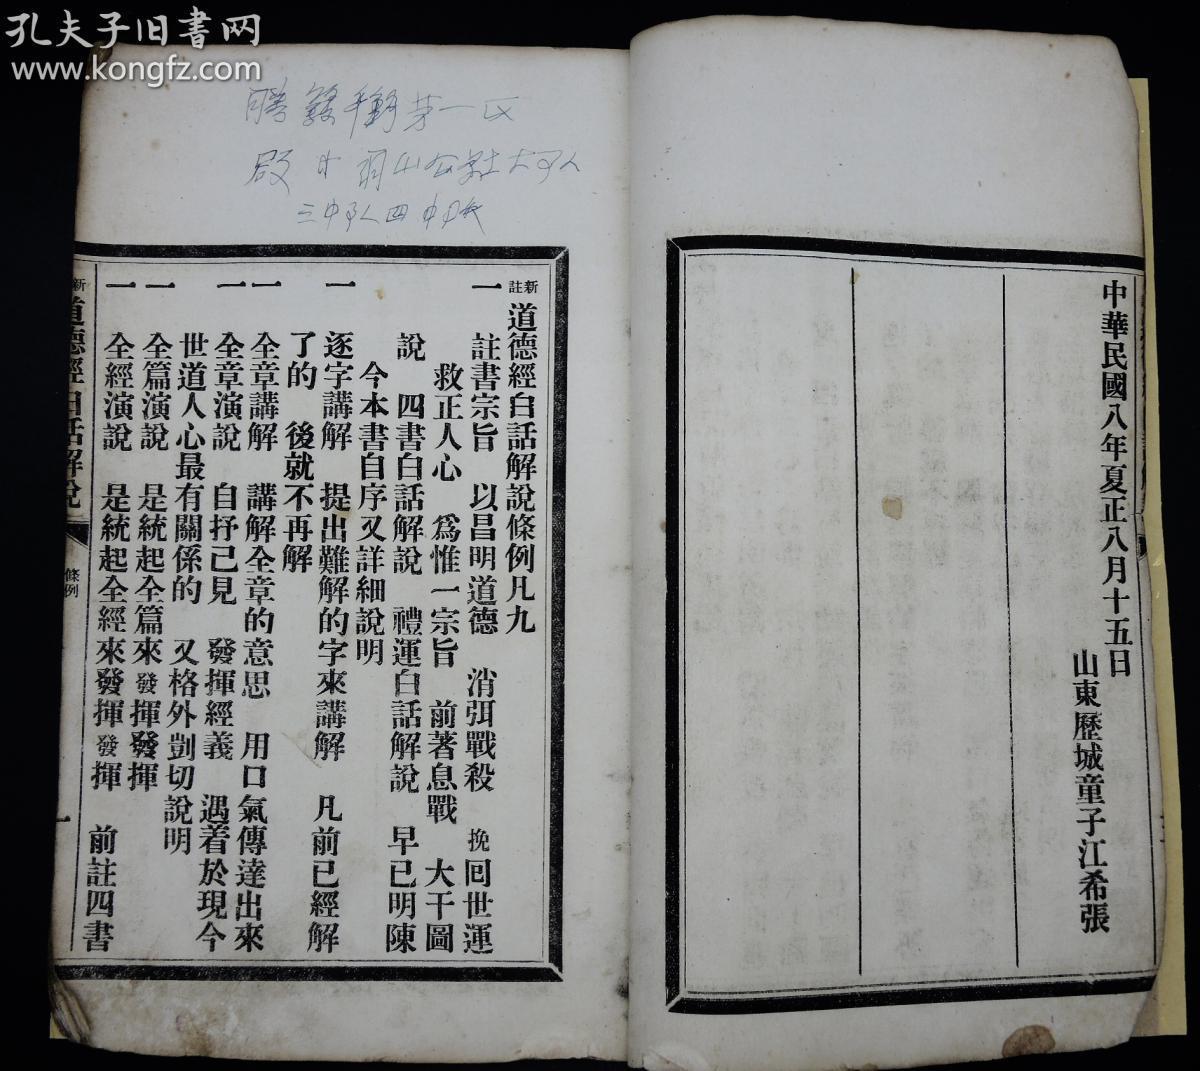 孔夫子旧書网
www.kongfz.com
中華民國八年夏正八月十五日
山東歷城童子江希張
新註道德經白話解說條例凡九
一 註書宗旨 以昌明道德 消弭戰殺 挽回世運
救正人心 爲惟一宗旨 前著息戰 大千圖
說 四書白話解說 禮運白話解說 早已明陳
今本書自序又詳細說明
一 逐字講解 提出難解的字來講解 凡前已經解
了的 後就不再解
一 全章講解 講解全章的意思 用口氣傳達出來
一 全章演說 自抒己見 發揮經義 遇着於現今
世道人心最有關係的 又格外剴切說明
一 全篇演說 是統起全篇來發揮發揮
一 全經演說 是統起全經來發揮發揮 前註四書
新 道德經白話解說
條例
一
第一区
公社大队
三中队四中队